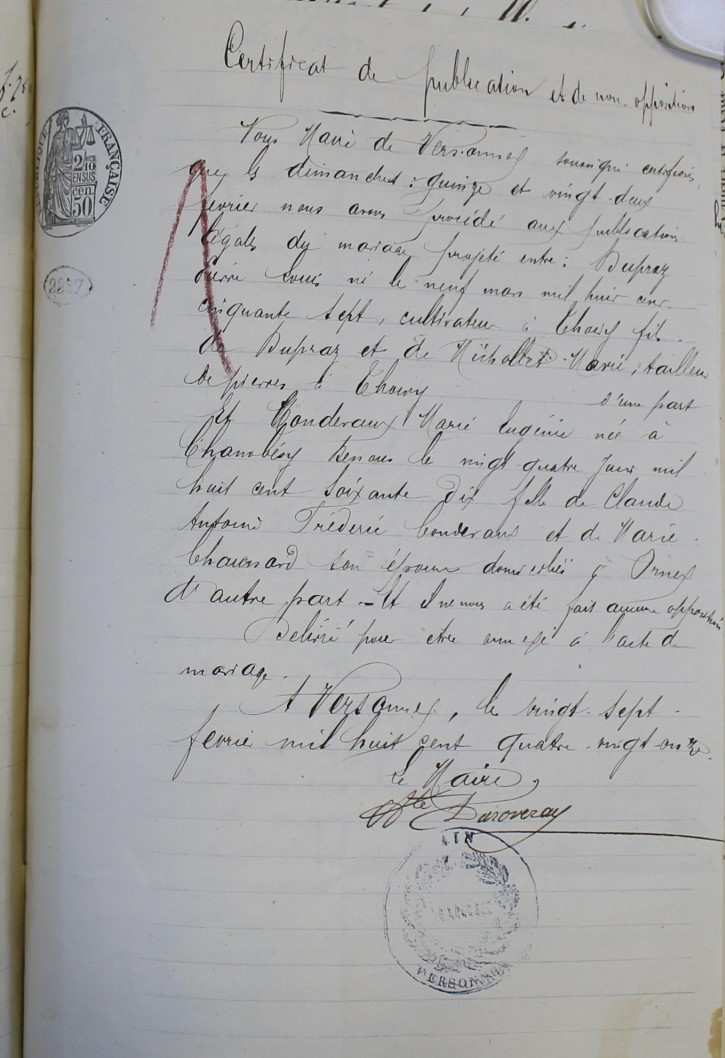 Certificat de publication et de non opposition
RÉPUBLIQUE FRANÇAISE
2/10
EN SUS
50 cen
2257
Nous Maire de Versonnex soussigné certifions
que les dimanches : quinze et vingt-deux
fevrier nous avons procédé aux publication
légales du mariage projeté entre : Dupraz
Pierre Louis né le neuf mars mil huit cent
cinquante sept, cultivateur à Thoiry fils
de Dupraz et de Michollet Marie, tailleur
de pierres à Thoiry d'une part
Et Conderaux Marie Eugénie née à
Chambésy le vingt quatre Juin mil
huit cent soixante dix fille de Claude
Antoine Fréderic Conderaux et de Marie
son épouse domiciliés à Ornex
d'autre part - Et Il ne nous a été fait aucune opposition
Délivré pour être annexé à l'acte de
mariage.
A Versonnex, le vingt-sept
fevrie mil huit cent quatre-vingt-onze.
Le Maire,
Duroveray
AIN
VERSONNEX